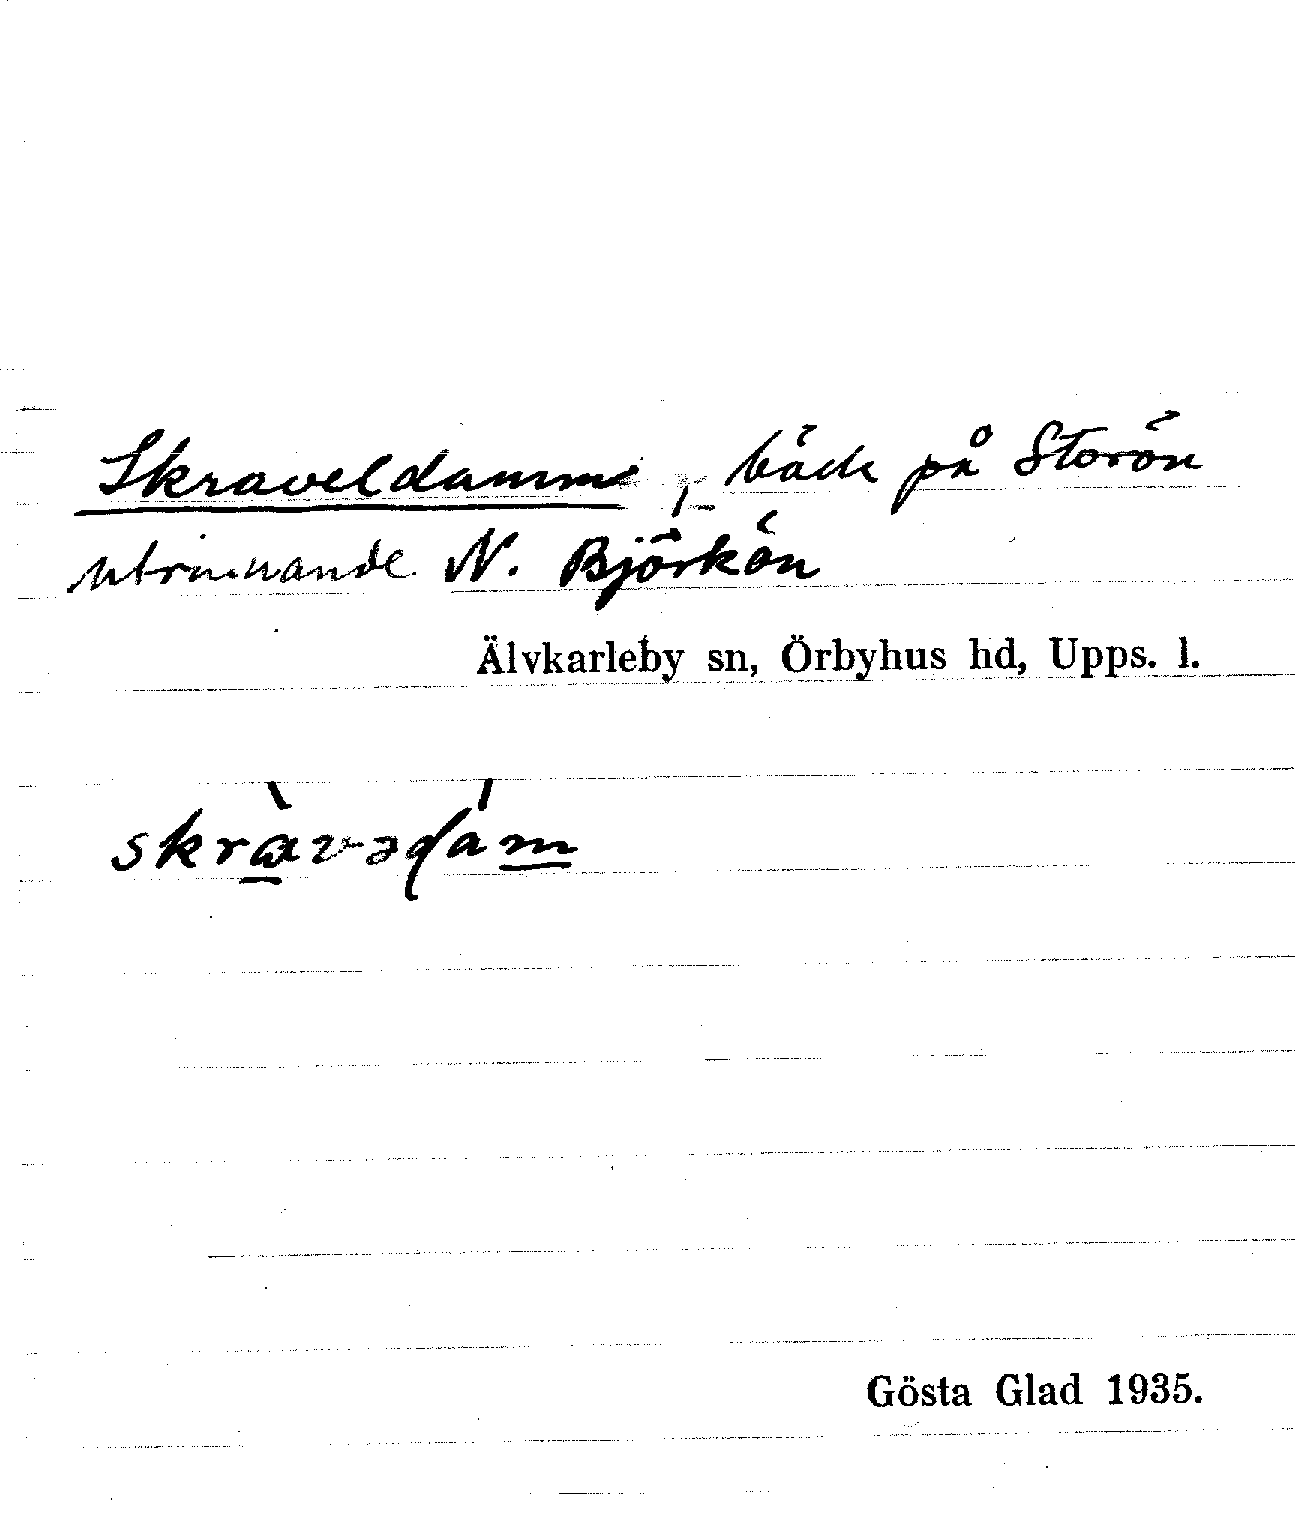 Skraveldamme, bäck på Storön
utrinnande N. Björkön
Älvkarleby sn, Örbyhus hd, Upps. l.
skràvəɖám
Gösta Glad 1935.